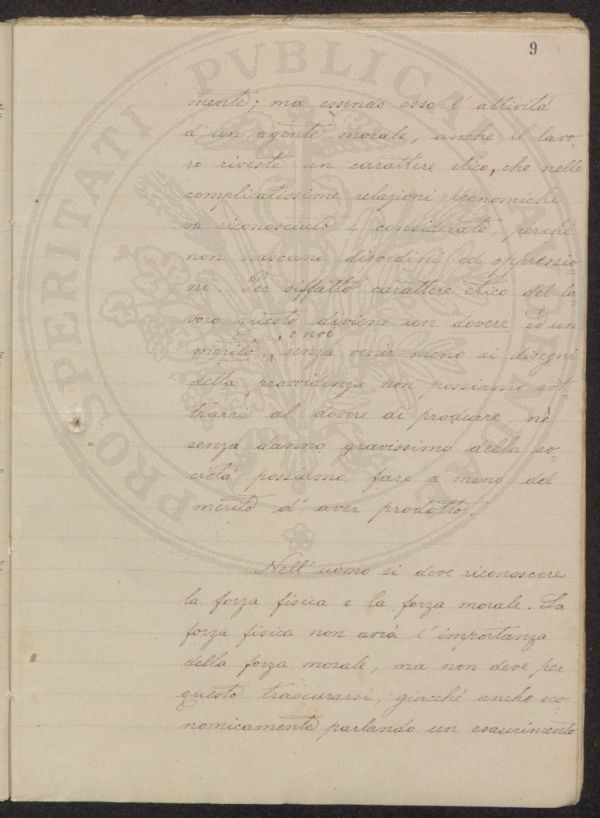 9
PROSPERITATI PVBLICAE
mente; ma essendo esso l'attività
d'un agente morale, anche il lavo=
ro riveste un carattere etico, che nelle
complicatissime relazioni economiche
va riconosciuto e considerato, perché
non nascani disordini ed oppressio=
ni. Per siffatto carattere etico del la=
voro questo diviene un dovere ed un
merito, e noi senza venir meno ai disegni
della provvidenza non possiamo sot=
trarci al dovere di produrre, nè
senza danno gravissimo della so=
cietà possiamo fare a meno del
merito d'aver prodotto.
Nell'uomo si deve riconoscere
la forza fisica e la forza morale. La
forza fisica non avrà l'importanza
della forza morale, ma non deve per
questo trascurarsi, giacché anche eco=
nomicamente parlando un esaurimento